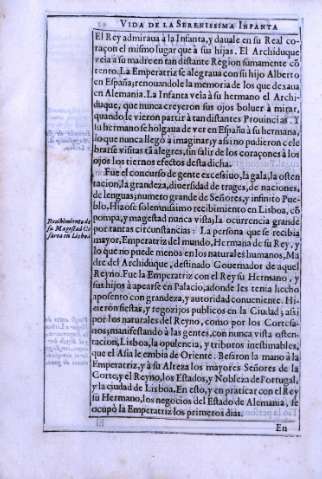 VIDA DE LA SERENISSIMA INFANTA
El Rey admiraua à la Infanta, y dauale en su Real co-
raçon el mismo lugar que à sus hijas. El Archiduque
veìa à su madre en tan distante Region sumamente cõ
tento. La Emperatriz se alegraua con su hijo Alberto
en España, renouandole la memoria de los que dexaua
en Alemania. La Infanta veìa à su hermano el Archi-
duque, que nunca creyeron sus ojos boluer à mirar,
quando le vieron partir à tan distantes Prouincias. Y
su hermano se holgaua de ver en España à su hermana,
lo que nunca llegò a imaginar, y assi no pudieron cele
brarse vistas tã alegres, sin salir de los coraçones à los
ojos los tiernos efectos desta dicha.
Fue el concurso de gente excessiuo, la gala, la osten
tacion, la grandeza, diuersidad de trages, de naciones,
de lenguas; numero grande de Señores, y infinito Pue-
blo. Hizose solemnissimo recibimiento en Lisboa, cõ
pompa, y magestad nunca vista, la ocurrencia grande
por tantas circunstancias: La persona que se recibia
mayor, Emperatriz del mundo, Hermana de su Rey, y
lo que no puede menos en los naturales humanos, Ma
dre del Archiduque, destinado Gouernador de aquel
Reyno. Fue la Emperatriz con el Rey su Hermano, y
sus hijos à apearse en Palacio, adonde les tenia hecho
aposento con grandeza, y autoridad conueniente. Hi-
zieron fiestas, y regozijos publicos en la Ciudad; assi
por los naturales del Reyno, como por los Cortesa-
nos; manifestando à las gentes, con nunca vista osten-
tacion, Lisboa, la opulencia, y tributos inestimables,
que el Asia le embia de Oriente. Besaron la mano à la
Emperatriz, y à su Alteza los mayores Señores de la
Corte, y el Reyno, los Estados, y Nobleza de Portugal,
y la ciudad de Lisboa. En esto, y en praticar con el Rey
su Hermano, los negocios del Estado de Alemania, se
ocupò la Emperatriz los primeros dias.
En
Recibimiento de
su Magestad Ce
sarea en Lisboa